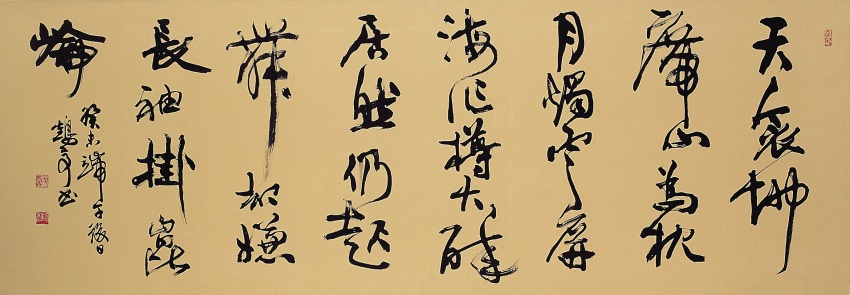 天衾地
席山為枕
月燭雲屏
海作樽大醉
居然仍起
舞却嫌
長袖掛崑
崙
癸未端午後日
書